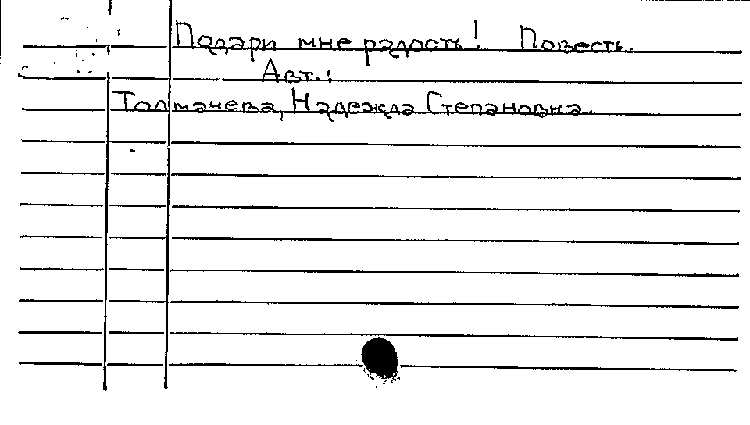 Подари мне радость! Повесть.
Авт.:
Толмачева, Надежда Степановна.